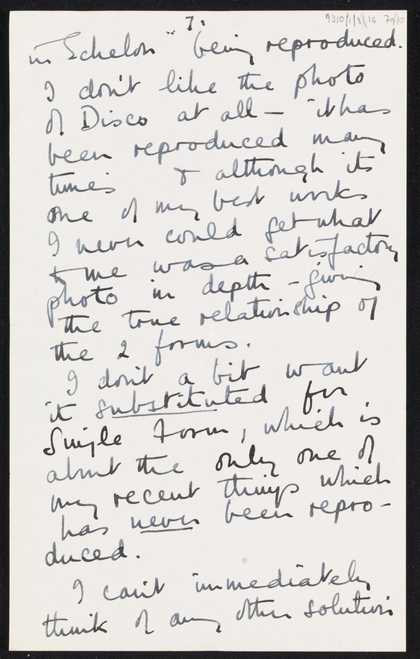 7.
9310/1/1/16 70/10
in "Schelon" being reproduced.
I don't like the photo
of Disco at all — it has
been reproduced many
times & although its
one of my best works
I never could get what
to me was a satisfactory
photo in depth – giving
the true relationship of
the 2 forms.
I don't a bit want
it substituted for
Single Form, which is
about the only one of
my recent things which
has never been repro-
duced.
I can't immediately
think of any other solution